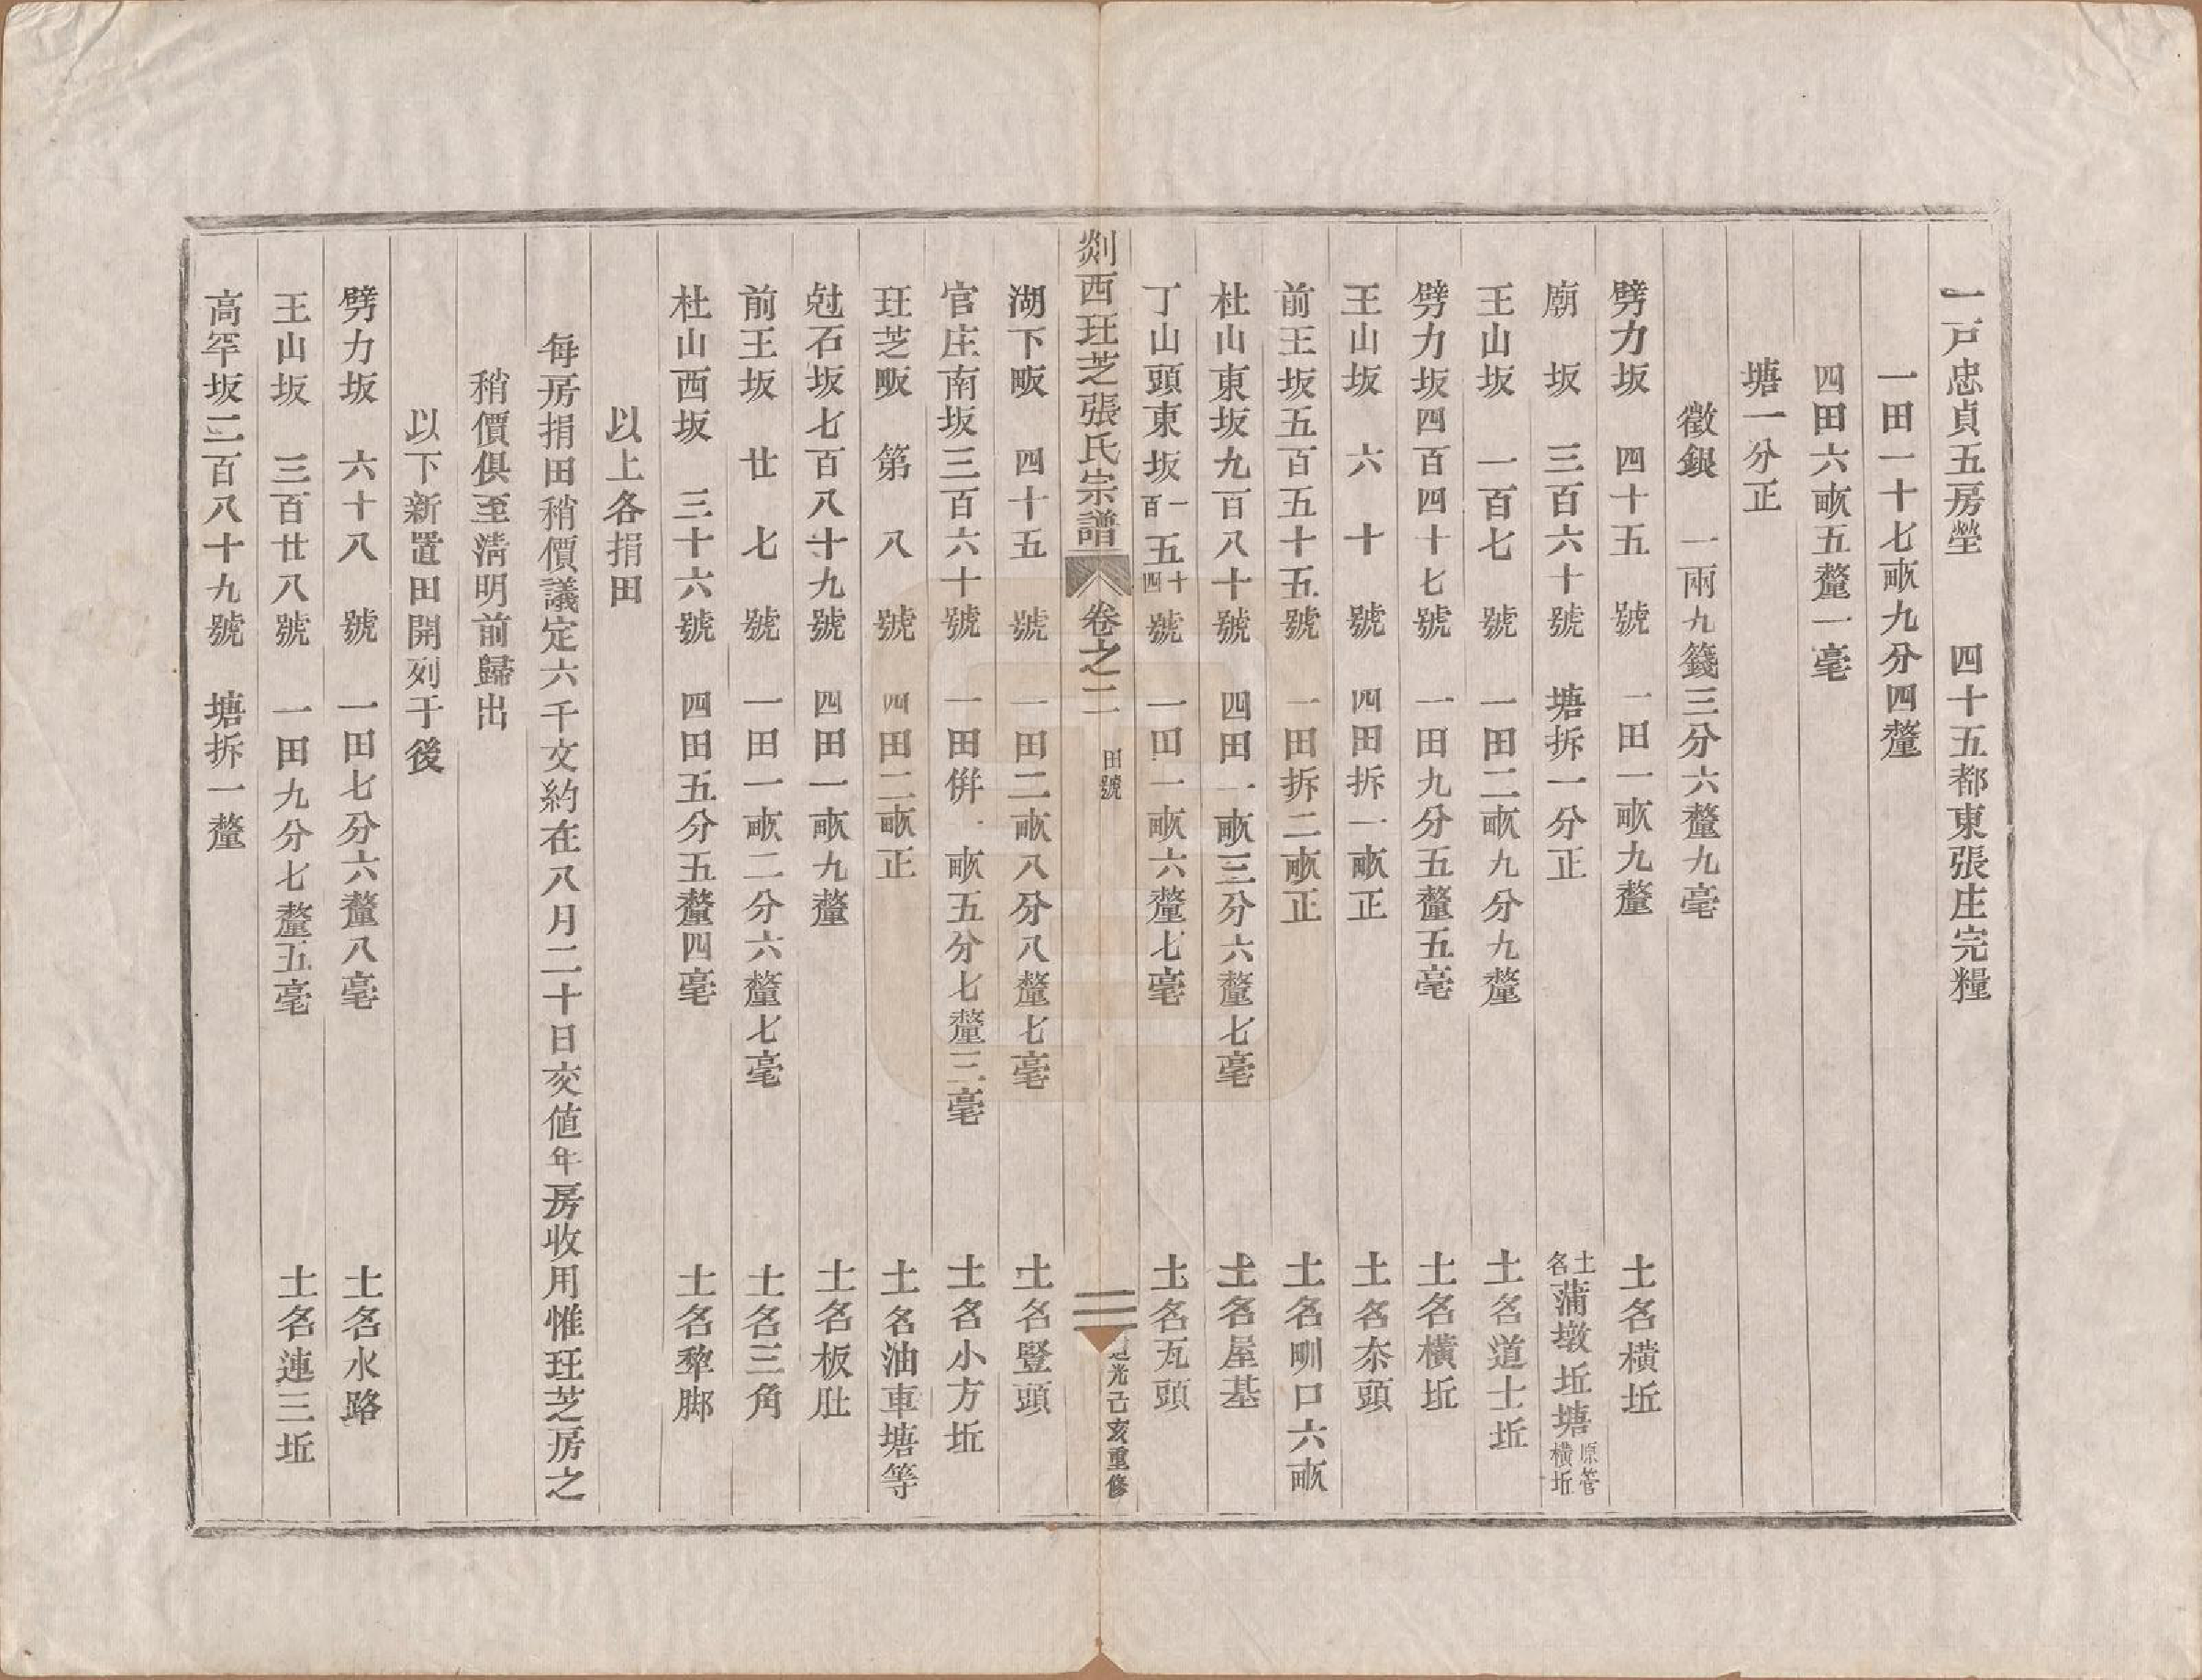 一戸忠貞五房塋　四十五都東張庄完糧
一田一十七畝九分四釐
四田六畝五釐一毫
塘一分正
徵銀　一兩九錢三分六釐九毫
劈力坂　四十五　號　一田一畝九釐　土名橫坵
廟　坂　三百六十號　塘拆一分正　土名蒲墩坵塘原管橫坵
王山坂　一百七　號　一田二畝九分九釐　土名道士坵
劈力坂四百四十七號　一田九分五釐五毫　土名橫坵
王山坂　六　十　號　四田拆一畝正　土名夵頭
前王坂五百五十五號　一田拆二畝正　土名甽口六畝
杜山東坂九百八十號　四田一畝三分六釐七毫　土名屋基
丁山頭東坂一百五十四號　一田一畝六釐七毫　土名瓦頭
剡西玨芝張氏宗譜　卷之二　田號　三　道光己亥重修
湖下畈　四十五　號　一田二畝八分八釐七毫　土名豎頭
官庄南坂三百六十號　一田併一畝五分七釐三毫　土名小方坵
玨芝畈　第　八　號　四田二畝正　土名油車塘等
尅石坂七百八十九號　四田一畝九釐　土名板肚
前王坂　廿　七　號　一田一畝二分六釐七毫　土名三角
杜山西坂　三十六號　四田五分五釐四毫　土名犂脚
以上各捐田
每房捐田稍價議定六千文約在八月二十日交値年房收用惟玨芝房之
稍價俱至淸明前歸出
以下新置田開列于後
劈力坂　六十八　號　一田七分六釐八毫　土名水路
王山坂　三百廿八號　一田九分七釐五毫　土名連三坵
高罕坂二百八十九號　塘拆一釐